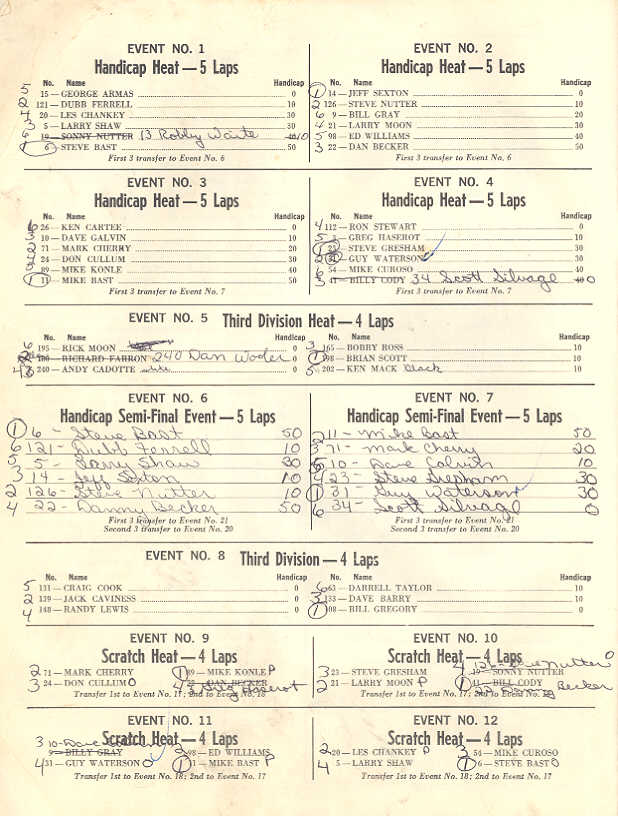 EVENT NO. 1
Handicap Heat — 5 Laps
No. Name Handicap
5 15 — GEORGE ARMAS 0
2 121 — DUBB FERRELL 10
4 20 — LES CHANKEY 30
3 5 — LARRY SHAW 30
6 19 — SONNY NUTTER 13 Robby Waite 40 10
1 6 — STEVE BAST 50
First 3 transfer to Event No. 6
EVENT NO. 2
Handicap Heat — 5 Laps
No. Name Handicap
1 14 — JEFF SEXTON 0
2 126 — STEVE NUTTER 10
6 9 — BILL GRAY 20
4 21 — LARRY MOON 30
5 98 — ED WILLIAMS 40
3 22 — DAN BECKER 50
First 3 transfer to Event No. 6
EVENT NO. 3
Handicap Heat — 5 Laps
No. Name Handicap
6 26 — KEN CARTEE 0
3 10 — DAVE GALVIN 10
2 71 — MARK CHERRY 20
24 — DON CULLUM 30
89 — MIKE KONLE 40
1 11 — MIKE BAST 50
First 3 transfer to Event No. 7
EVENT NO. 4
Handicap Heat — 5 Laps
No. Name Handicap
4 112 — RON STEWART 0
5 3 — GREG HASEROT 10
1 23 — STEVE GRESHAM 30
2 31 — GUY WATERSON 30
6 54 — MIKE CUROSO 40
3 47 — BILLY CODY 34 Scott Silvage 40 0
First 3 transfer to Event No. 7
EVENT NO. 5 Third Division Heat — 4 Laps
No. Name Handicap
6 195 — RICK MOON 0
2 180 — RICHARD FARRON 240 Dan Wooler 0
4 240 — ANDY CADOTTE white 0
No. Name Handicap
3 165 — BOBBY ROSS 10
1 198 — BRIAN SCOTT 10
5 202 — KEN MACK black 10
EVENT NO. 6
Handicap Semi-Final Event — 5 Laps
1 6 - Steve Bast 50
6 121 - Dubb Ferrell 10
5 5 - Larry Shaw 30
3 14 - Jeff Sexton 10
2 126 - Steve Nutter 10
4 22 - Danny Becker 50
First 3 transfer to Event No. 21
Second 3 transfer to Event No. 20
EVENT NO. 7
Handicap Semi-Final Event — 5 Laps
2 11 - Mike Bast 50
3 71 - Mark Cherry 20
5 10 - Dave Galvin 10
4 23 - Steve Gresham 30
1 31 - Guy Waterson 30
6 34 - Scott Silvage 0
First 3 transfer to Event No. 21
Second 3 transfer to Event No. 20
EVENT NO. 8 Third Division — 4 Laps
No. Name Handicap
5 131 — CRAIG COOK 0
2 139 — JACK CAVINESS 0
4 148 — RANDY LEWIS 0
No. Name Handicap
6 63 — DARRELL TAYLOR 10
3 133 — DAVE BARRY 10
1 08 — BILL GREGORY 10
EVENT NO. 9
Scratch Heat — 4 Laps
2 71 — MARK CHERRY 1 89 — MIKE KONLE P
3 24 — DON CULLUM O 4 22 — DAN BECKER 3 Greg Haserot
Transfer 1st to Event No. 17; 2nd to Event No. 18
EVENT NO. 10
Scratch Heat — 4 Laps
3 23 — STEVE GRESHAM 4 126 - Steve Nutter O 19 — SONNY NUTTER
2 21 — LARRY MOON P 1 47 — BILL CODY 22 Danny Becker
Transfer 1st to Event No. 17; 2nd to Event No. 18
EVENT NO. 11
Scratch Heat — 4 Laps
3 10 - Dave
9 — BILLY GRAY 2 98 — ED WILLIAMS
4 31 — GUY WATERSON O 1 11 — MIKE BAST P
Transfer 1st to Event No. 18; 2nd to Event No. 17
EVENT NO. 12
Scratch Heat — 4 Laps
2 20 — LES CHANKEY P 3 54 — MIKE CUROSO
4 5 — LARRY SHAW 1 6 — STEVE BAST O
Transfer 1st to Event No. 18; 2nd to Event No. 17